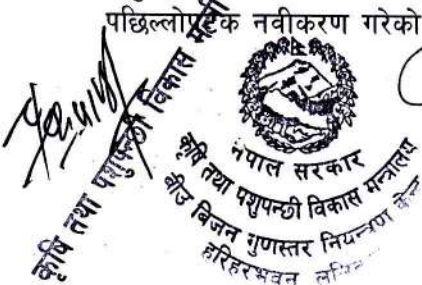 पछिल्लोपटक नवीकरण गरेको
कृषि तथा पशुपन्छी विकास
नेपाल सरकार
कृषि तथा पशुपन्छी विकास मन्त्रालय
बीउ बिजन गुणस्तर नियन्त्रण केन्द्र
हरिहरभवन